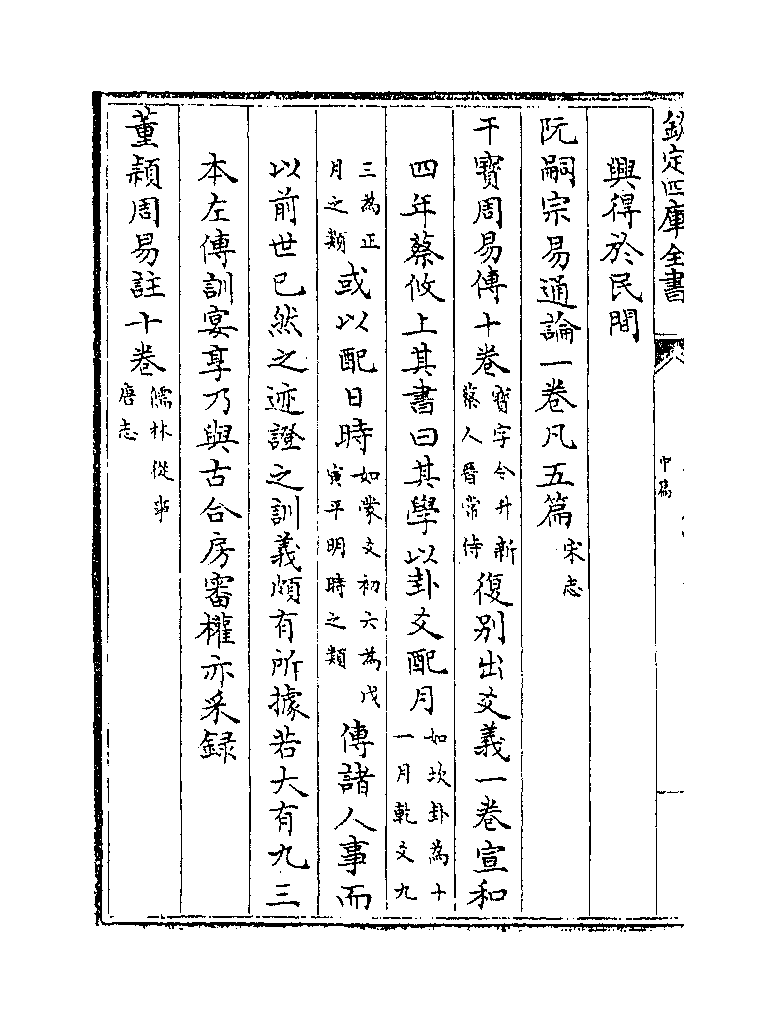 欽定四庫全書
中篇
興得於民間
阮嗣宗易通論一卷凡五篇宋志
干寶周易傳十卷寶字令升新蔡人晉常侍復別出爻義一卷宣和
四年蔡攸上其書曰其學以卦爻配月如坎卦為十一月乾爻九
三為正月之類或以配日時如蒙爻初六為戊寅平明時之類傳諸人事而
以前世已然之迹證之訓義頗有所據若大有九三
本左傳訓宴享乃與古合房審權亦采録
董穎周易註十卷儒林從事唐志